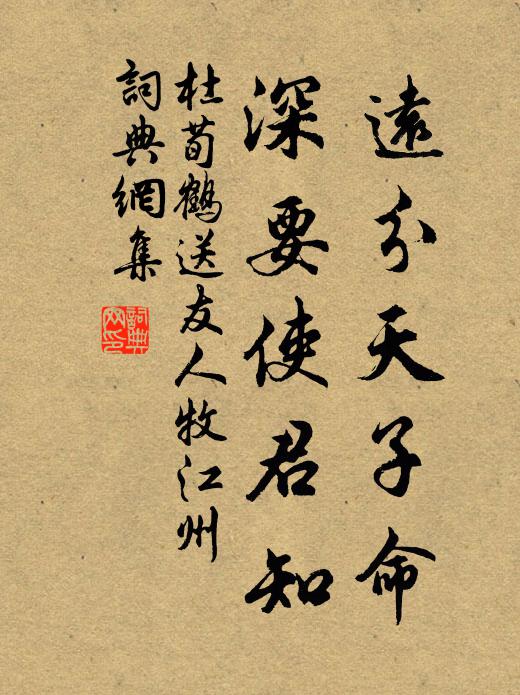 遠分天子命
深要使君知
杜荀鶴送友人牧江州
詞典網集
詞典網印